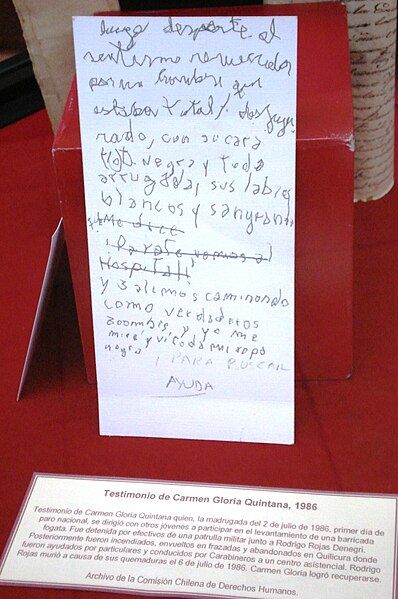 luego desperté al
sentirme remecida
por un hombre, que
estaba total/. desfigu
rado, con su cara
negra y toda
arrugada, sus labios
blancos y sangrando
Me dice
¡Parate vamos al
Hospital!
y salimos caminando
como verdaderos
zoombis, y yo me
miré y vi toda mi ropa
negra
¡ PARA BUSCAR
AYUDA
Testimonio de Carmen Gloria Quintana, 1986
Testimonio de Carmen Gloria Quintana quien, la madrugada del 2 de julio de 1986, primer día de
paro nacional, se dirigió con otros jóvenes a participar en el levantamiento de una barricada
fogata. Fue detenida por efectivos de una patrulla militar junto a Rodrigo Rojas Denegri.
Posteriormente fueron incendiados, envueltos en frazadas y abandonados en Quilicura donde
fueron ayudados por particulares y conducidos por Carabineros a un centro asistencial. Rodrigo
Rojas murió a causa de sus quemaduras el 6 de julio de 1986. Carmen Gloria logró recuperarse.
Archivo de la Comisión Chilena de Derechos Humanos.